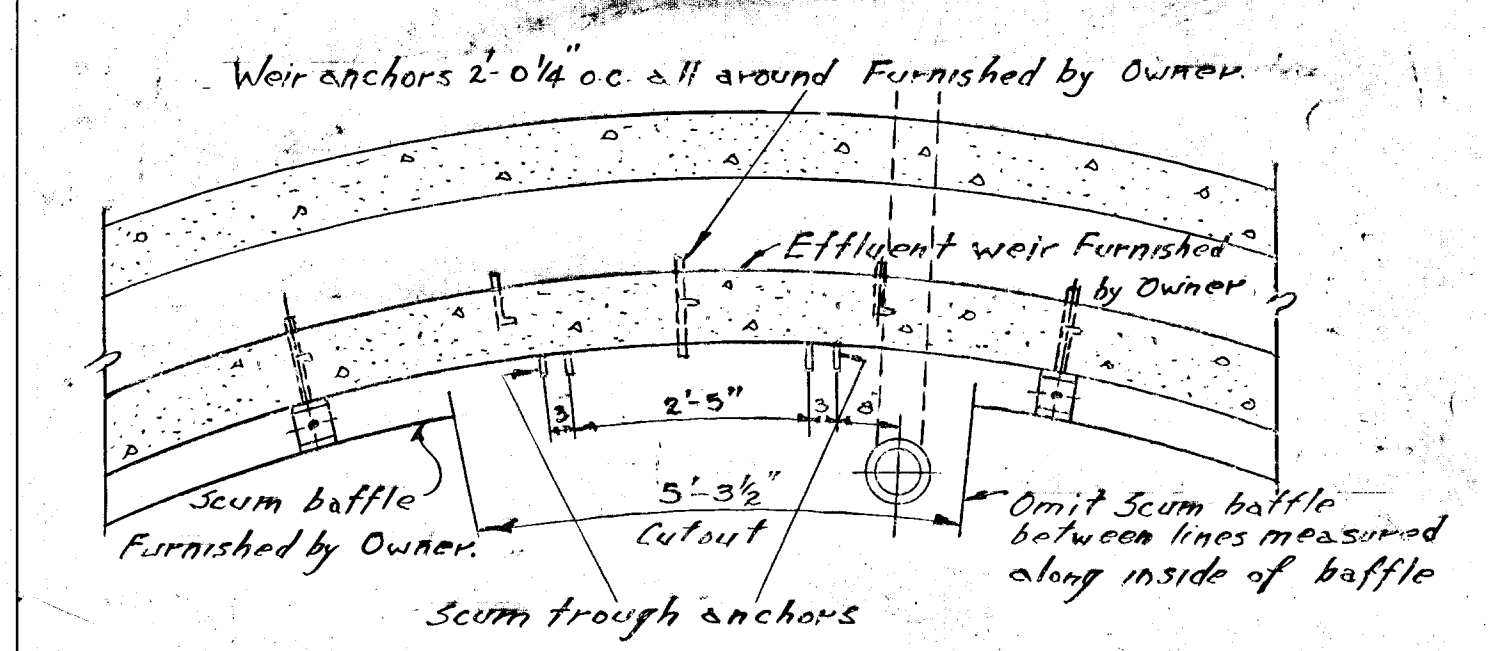 Weir anchors 2'-0 1/4" o.c. all around Furnished by Owner.
Effluent weir Furnished
by Owner.
3 2'-5" 3 8
5'-3 1/2"
Cutout
Scum baffle
Furnished by Owner.
Omit Scum baffle
between lines measured
along inside of baffle
Scum trough anchors